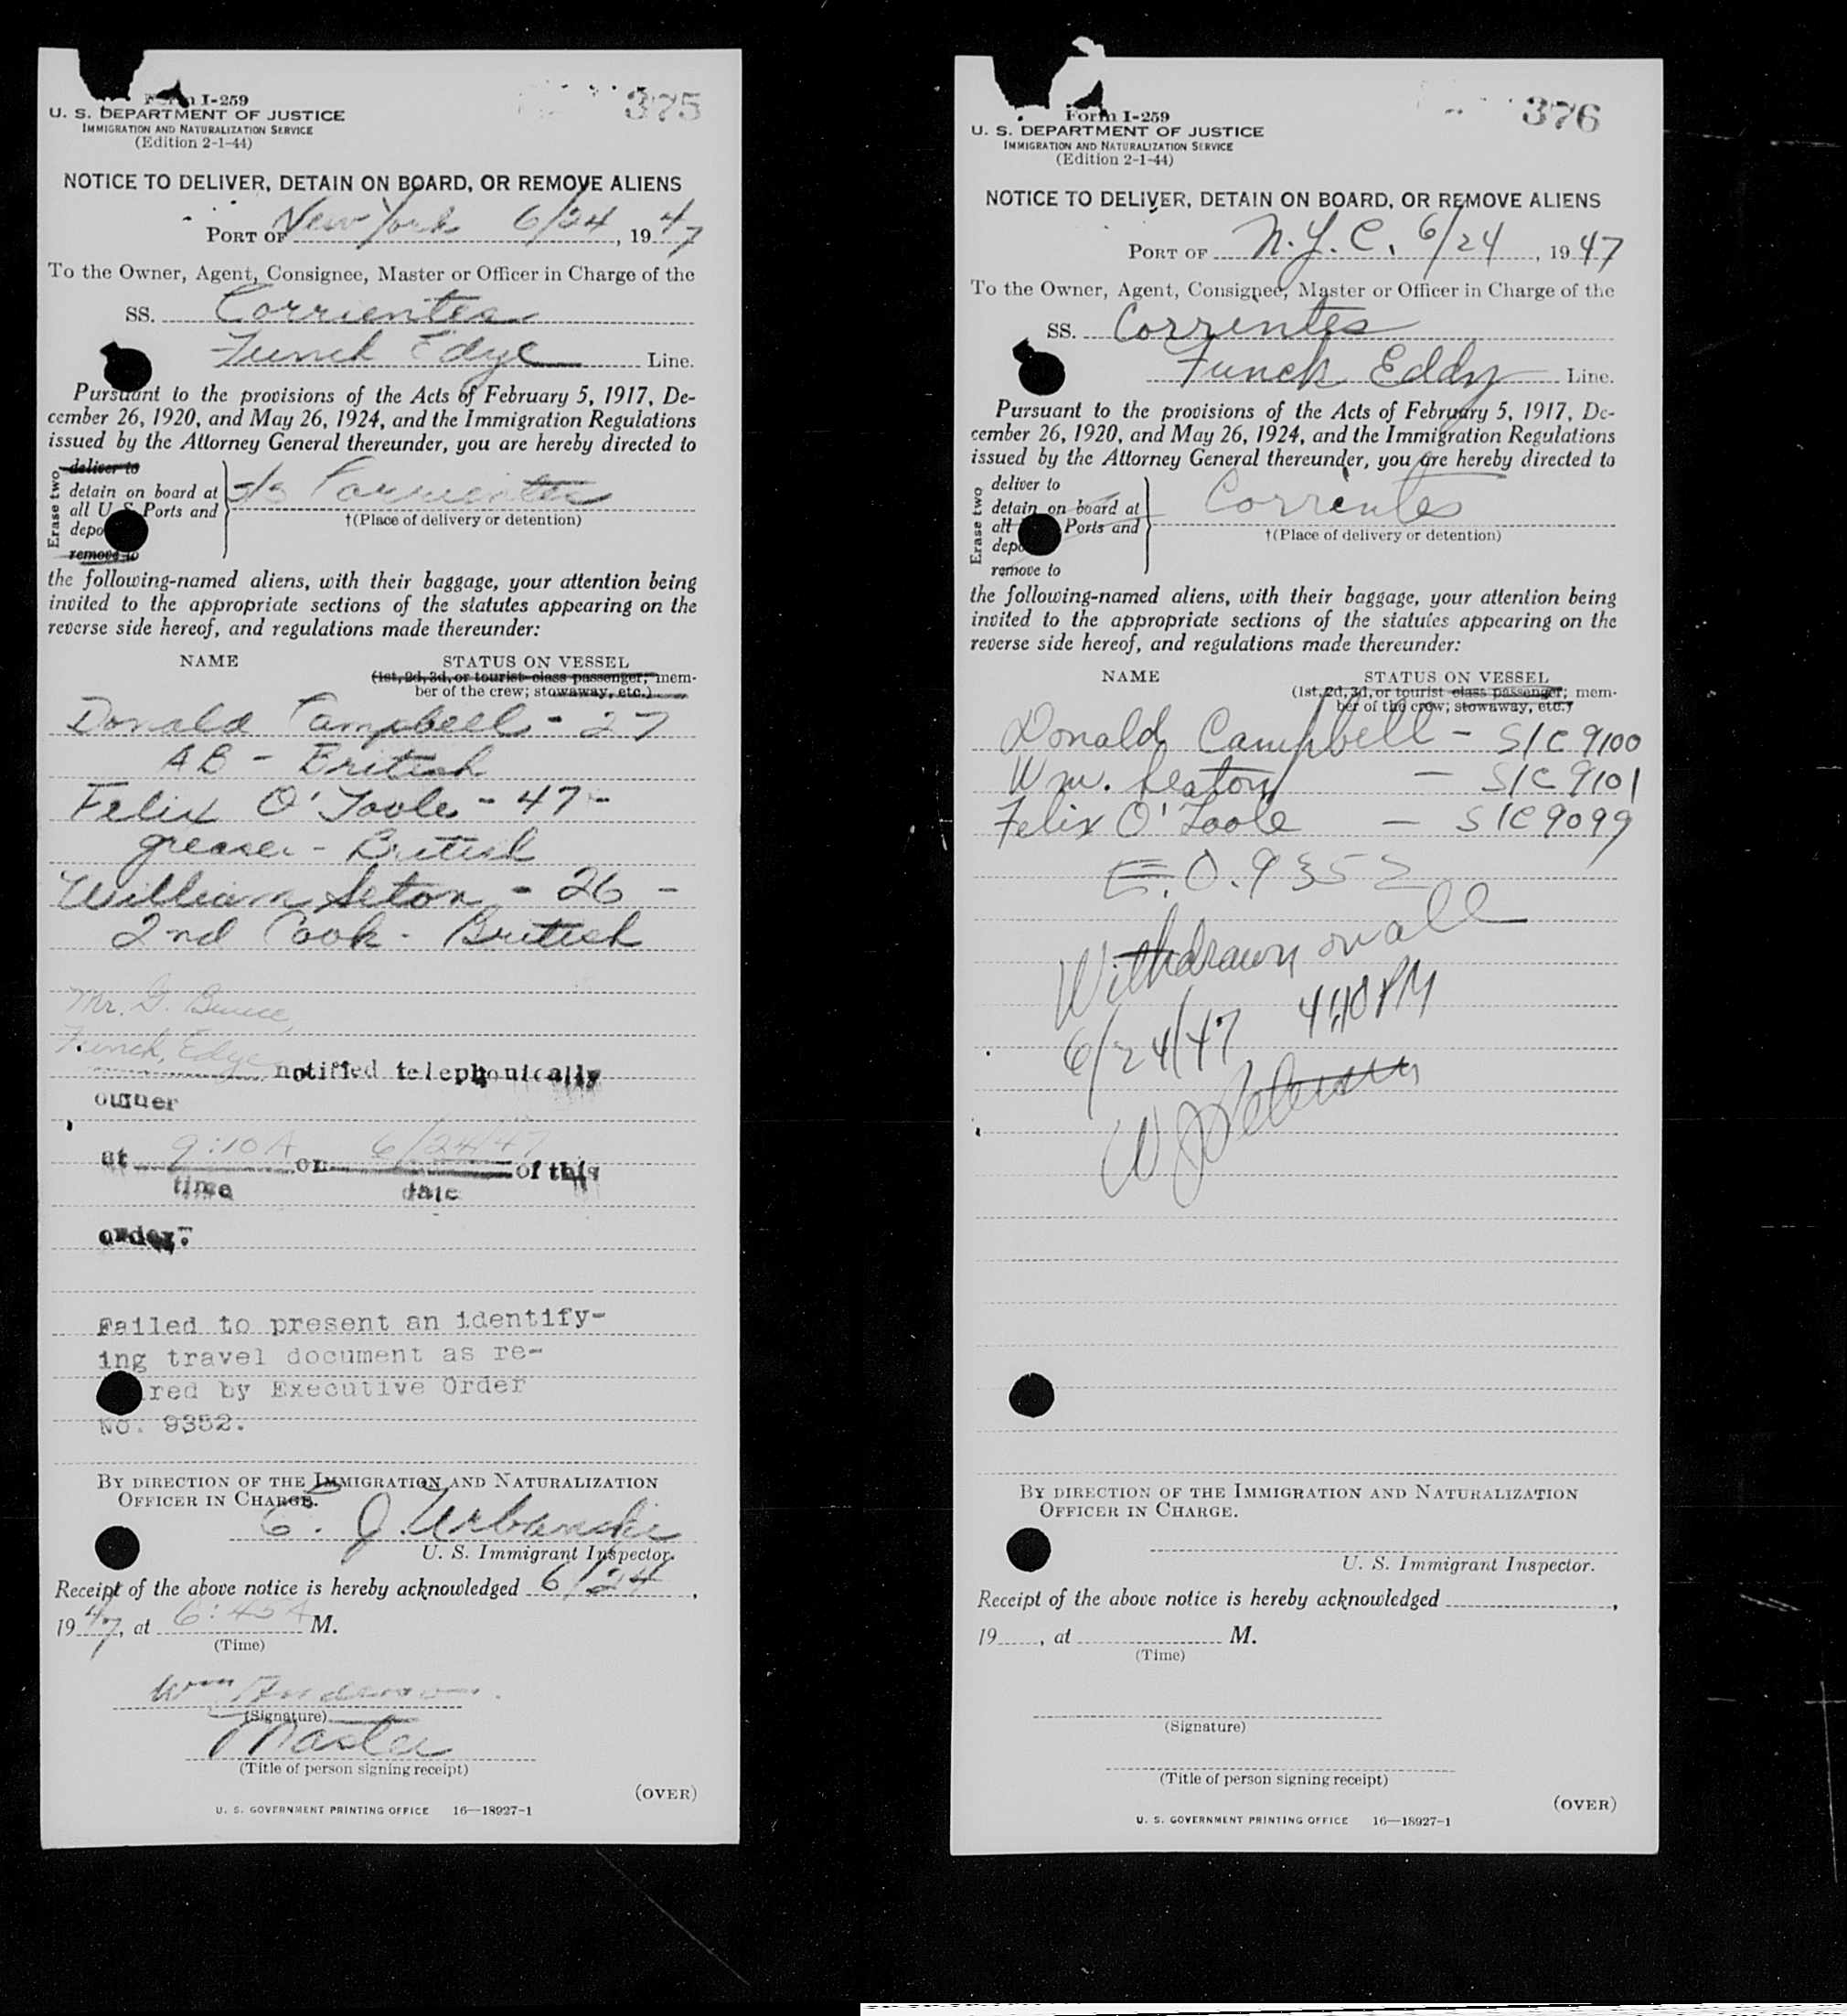 Form I-259
375
U. S. DEPARTMENT OF JUSTICE
IMMIGRATION AND NATURALIZATION SERVICE
(Edition 2-1-44)
NOTICE TO DELIVER, DETAIN ON BOARD, OR REMOVE ALIENS
PORT OF New York 6/24, 1947
To the Owner, Agent, Consignee, Master or Officer in Charge of the
SS. Corrientes
Funch Edye Line.
Pursuant to the provisions of the Acts of February 5, 1917, De-
cember 26, 1920, and May 26, 1924, and the Immigration Regulations
issued by the Attorney General thereunder, you are hereby directed to
Erase two
deliver to
detain on board at
all U S Ports and
depo
remove to
S/S Corrientes
†(Place of delivery or detention)
the following-named aliens, with their baggage, your attention being
invited to the appropriate sections of the statutes appearing on the
reverse side hereof, and regulations made thereunder:
NAME STATUS ON VESSEL
(1st, 2d, 3d, or tourist class passenger; mem-
ber of the crew; stowaway, etc.)
Donald Campbell - 27
AB - British
Felix O'Toole - 47 -
greaser - British
William Seton - 26 -
2nd Cook - British
Mr. G.
Funch, Edye notified telephonically
owner
at 9:10 A on 6/24/47 of this
time date
order.
Failed to present an identify-
ing travel document as re-
red by Executive Order
No. 9352.
BY DIRECTION OF THE IMMIGRATION AND NATURALIZATION
OFFICER IN CHARGE.
E. J. Urbanski
U. S. Immigrant Inspector.
Receipt of the above notice is hereby acknowledged 6/24,
1947, at 6:45 A M.
(Time)
Wm Anderson.
(Signature)
Master
(Title of person signing receipt)
(OVER)
U. S. GOVERNMENT PRINTING OFFICE 16—18927-1
Form I-259
376
U. S. DEPARTMENT OF JUSTICE
IMMIGRATION AND NATURALIZATION SERVICE
(Edition 2-1-44)
NOTICE TO DELIVER, DETAIN ON BOARD, OR REMOVE ALIENS
PORT OF N.Y.C. 6/24, 1947
To the Owner, Agent, Consignee, Master or Officer in Charge of the
SS. Corrientes
Funch Eddy Line.
Pursuant to the provisions of the Acts of February 5, 1917, De-
cember 26, 1920, and May 26, 1924, and the Immigration Regulations
issued by the Attorney General thereunder, you are hereby directed to
Erase two
deliver to
detain on board at
all Ports and
depo
remove to
Corrientes
†(Place of delivery or detention)
the following-named aliens, with their baggage, your attention being
invited to the appropriate sections of the statutes appearing on the
reverse side hereof, and regulations made thereunder:
NAME STATUS ON VESSEL
(1st, 2d, 3d, or tourist class passenger; mem-
ber of the crew; stowaway, etc.)
Donald Campbell - S/C 9100
Wm. Seaton - S/C 9101
Felix O'Toole - S/C 9099
E.O. 9352
Withdrawn on all
6/24/47 4:40 PM
BY DIRECTION OF THE IMMIGRATION AND NATURALIZATION
OFFICER IN CHARGE.
U. S. Immigrant Inspector.
Receipt of the above notice is hereby acknowledged ,
19 , at M.
(Time)
(Signature)
(Title of person signing receipt)
(OVER)
U. S. GOVERNMENT PRINTING OFFICE 16—18927-1